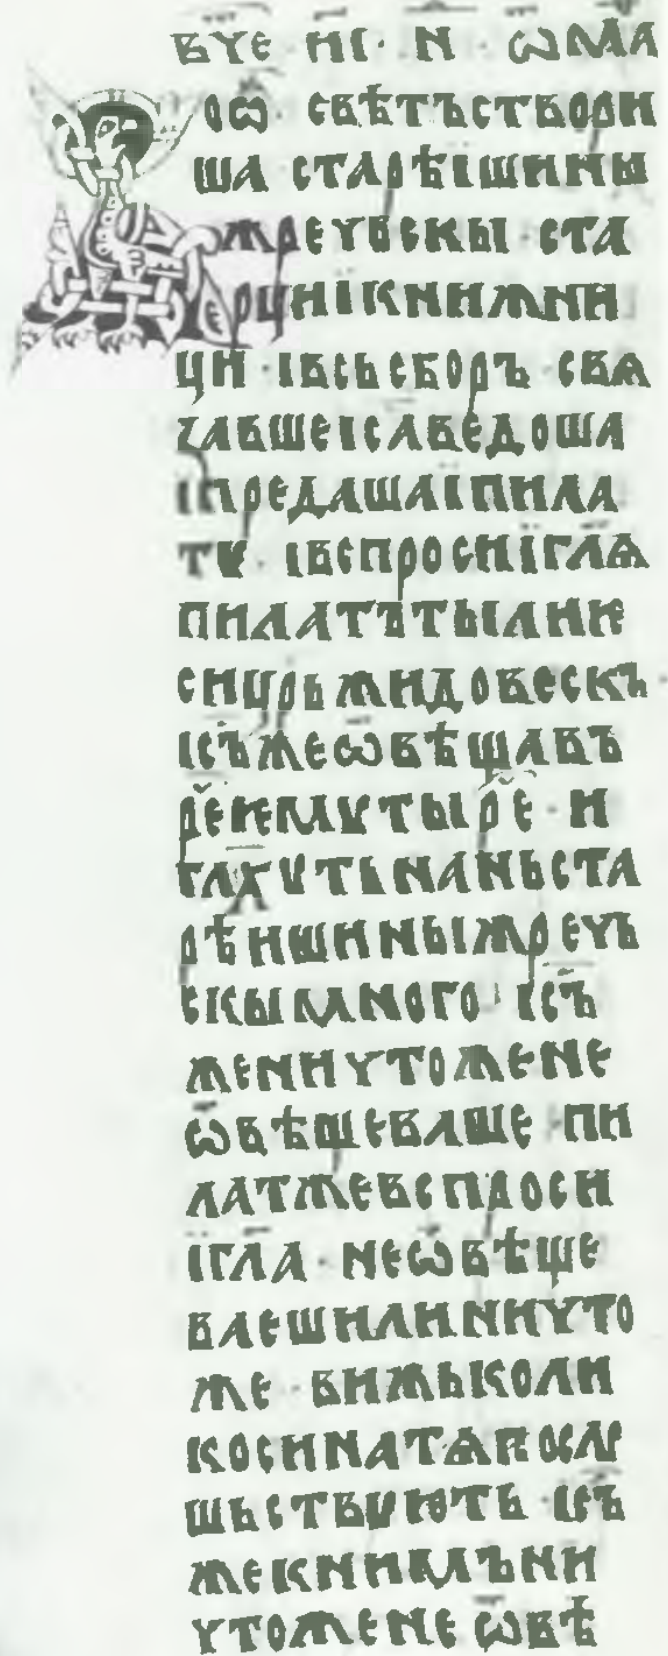 вꙋе · н҃і · н҃ · ѡ ма
о ѡ҃ · свѣтъствори
ша старѣішины
жреꙋвскы · ста
рци ікнижни
ци · івсьсборъ · свѧ
ꙁавшеісаведоша
іпредашаіпила
тꙋ · івспросиіглѫ
пилатътылие
сицрьжидовескъ ·
ісъжеѡвѣщавъ
ре҃емꙋтыре҃ · и
глахꙋтьнаньста
рѣишиныжречь
скымного ісъ
женичтожене
ѡвѣщеваше пи
латжевспроси
ігла · неѡвѣще
ваешилиничто
же · вижьколи
косинатѧпослꙋ
шьствꙋють · ісъ
жекнимъни
чтожене ѡвѣ